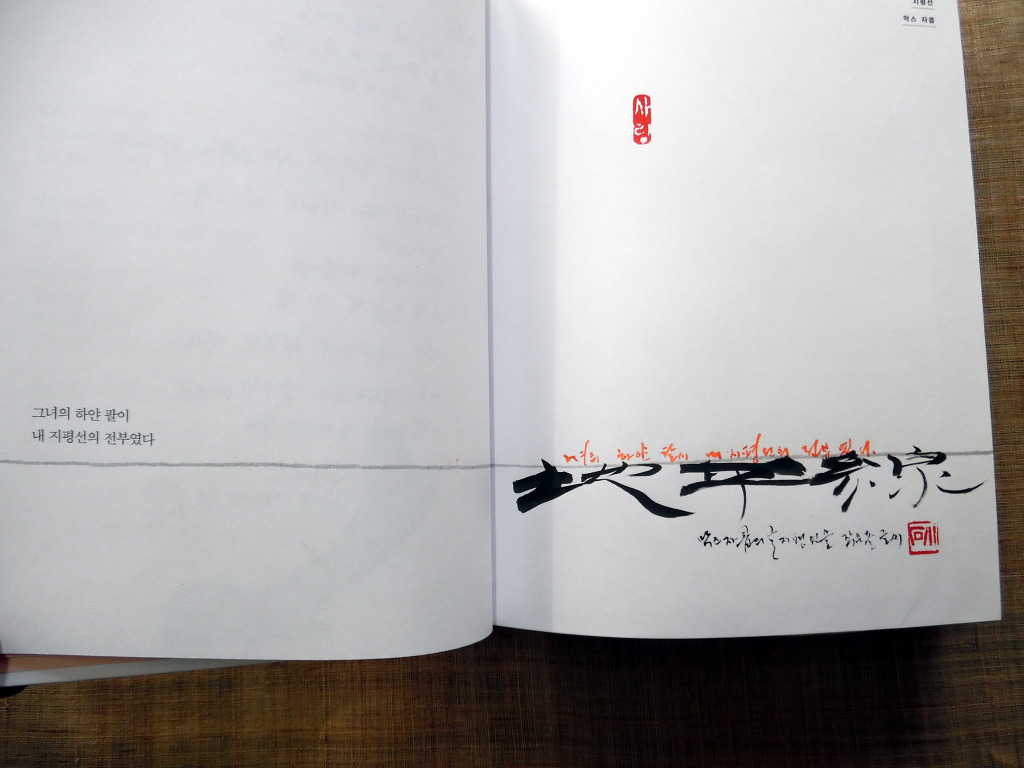 그녀의 하얀 팔이
내 지평선의 전부였다
지평선
막스 자콥
사랑
그녀의 하얀 팔이 내 지평선의 전부였다.
地平線
막스자콥의 글 지평선을